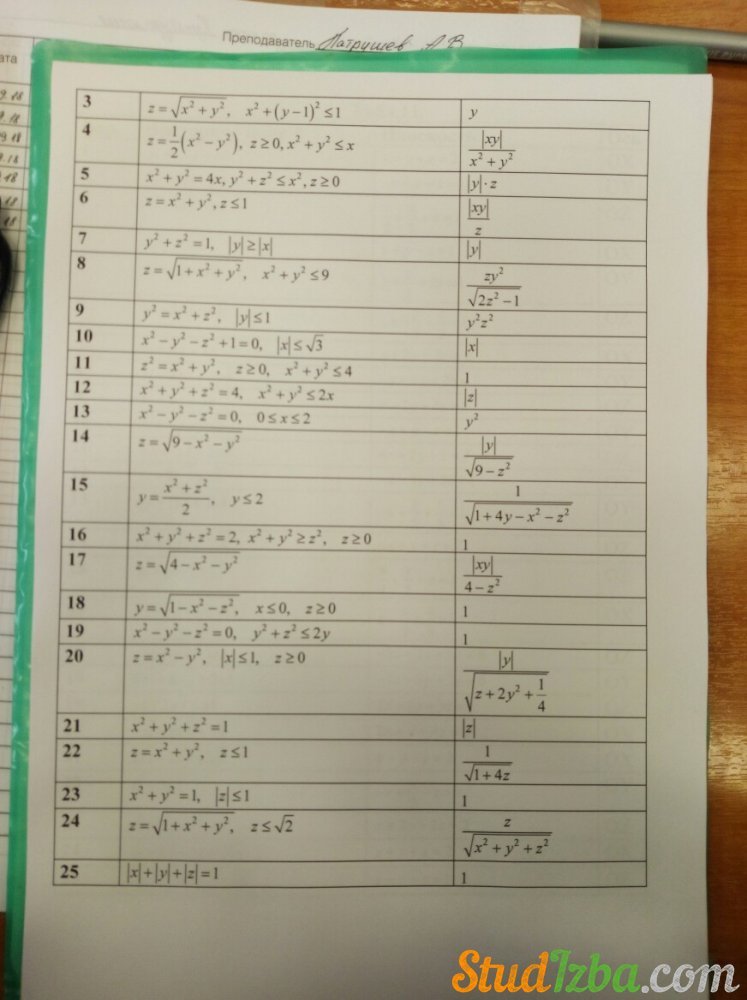 Преподаватель Патрушев А В
ата
9.18
9.18
9.18
9.18
18
18
18
3 z = √(x² + y²), x² + (y − 1)² ≤ 1 y
4 z = 1/2 (x² − y²), z ≥ 0, x² + y² ≤ x |xy|/(x² + y²)
5 x² + y² = 4x, y² + z² ≤ x², z ≥ 0 |y| · z
6 z = x² + y², z ≤ 1 |xy|/z
7 y² + z² = 1, |y| ≥ |x| |y|
8 z = √(1 + x² + y²), x² + y² ≤ 9 zy²/√(2z² − 1)
9 y² = x² + z², |y| ≤ 1 y²z²
10 x² − y² − z² + 1 = 0, |x| ≤ √3 |x|
11 z² = x² + y², z ≥ 0, x² + y² ≤ 4 1
12 x² + y² + z² = 4, x² + y² ≤ 2x |z|
13 x² − y² − z² = 0, 0 ≤ x ≤ 2 y²
14 z = √(9 − x² − y²) |y|/√(9 − z²)
15 y = (x² + z²)/2, y ≤ 2 1/√(1 + 4y − x² − z²)
16 x² + y² + z² = 2, x² + y² ≥ z², z ≥ 0 1
17 z = √(4 − x² − y²) |xy|/(4 − z²)
18 y = √(1 − x² − z²), x ≤ 0, z ≥ 0 1
19 x² − y² − z² = 0, y² + z² ≤ 2y 1
20 z = x² − y², |x| ≤ 1, z ≥ 0 |y|/√(z + 2y² + 1/4)
21 x² + y² + z² = 1 |z|
22 z = x² + y², z ≤ 1 1/√(1 + 4z)
23 x² + y² = 1, |z| ≤ 1 1
24 z = √(1 + x² + y²), z ≤ √2 z/√(x² + y² + z²)
25 |x| + |y| + |z| = 1 1
StudIzba.com